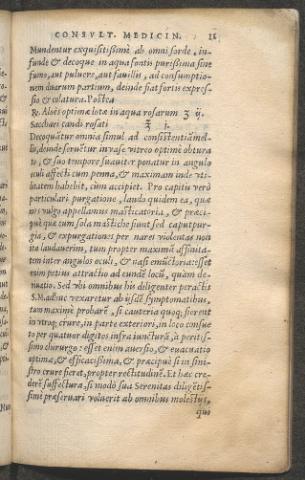 CONSVLT. MEDICIN. 11
Mundentur exquisitissimè ab omni sorde, in-
funde & decoque in aqua fontis purissima sine
fumo, aut puluere, aut fauillis, ad consumptio-
nem duarum partium, deinde fiat fortis expres-
sio & colatura. Postea
℞. Aloës optimæ lotæ in aqua rosarum ʒ ij.
Sacchari candi rosati ʒ j.
Decoquãtur omnia simul ad consistentiã mel-
lis, deinde seruẽtur in vase vitreo optimè obtura
to, & suo tempore suauiter ponatur in angulo
oculi affecti cum penna, & maximam inde vti-
litatem habebit, cùm accipiet. Pro capitis verò
particulari purgatione, laudo quidem ea, quæ
nos vulgo appellamus masticatoria, & præci-
puè quæ cum sola mastiche fiunt sed caputpur-
gia, & expurgationes per nares violentas non
ita laudauerim, tum propter maximã affinita-
tem inter angulos oculi, & nasi emũctoria: esset
enim potius attractio ad eundẽ locũ, quàm de-
riuatio. Sed vbi omnibus his diligenter peractis
S. M. adhuc vexaretur ab ijsdẽ symptomatibus,
tum maximè probarẽ, si cauteria quoq; fierent
in vtroq; crure, in parte exteriori, in loco consue
to per quatuor digitos infra iuncturã, à peritis-
simo chirurgo: esset enim auersio, & euacuatio
optima, & efficacissima, & præcipuè si in sini-
stro crure fierat, propter rectitudinẽ. Et hæc cre-
derẽ suffectura, si modò sua Serenitas diligẽtis-
simè præseruari voluerit ab omnibus molestijs,
quo